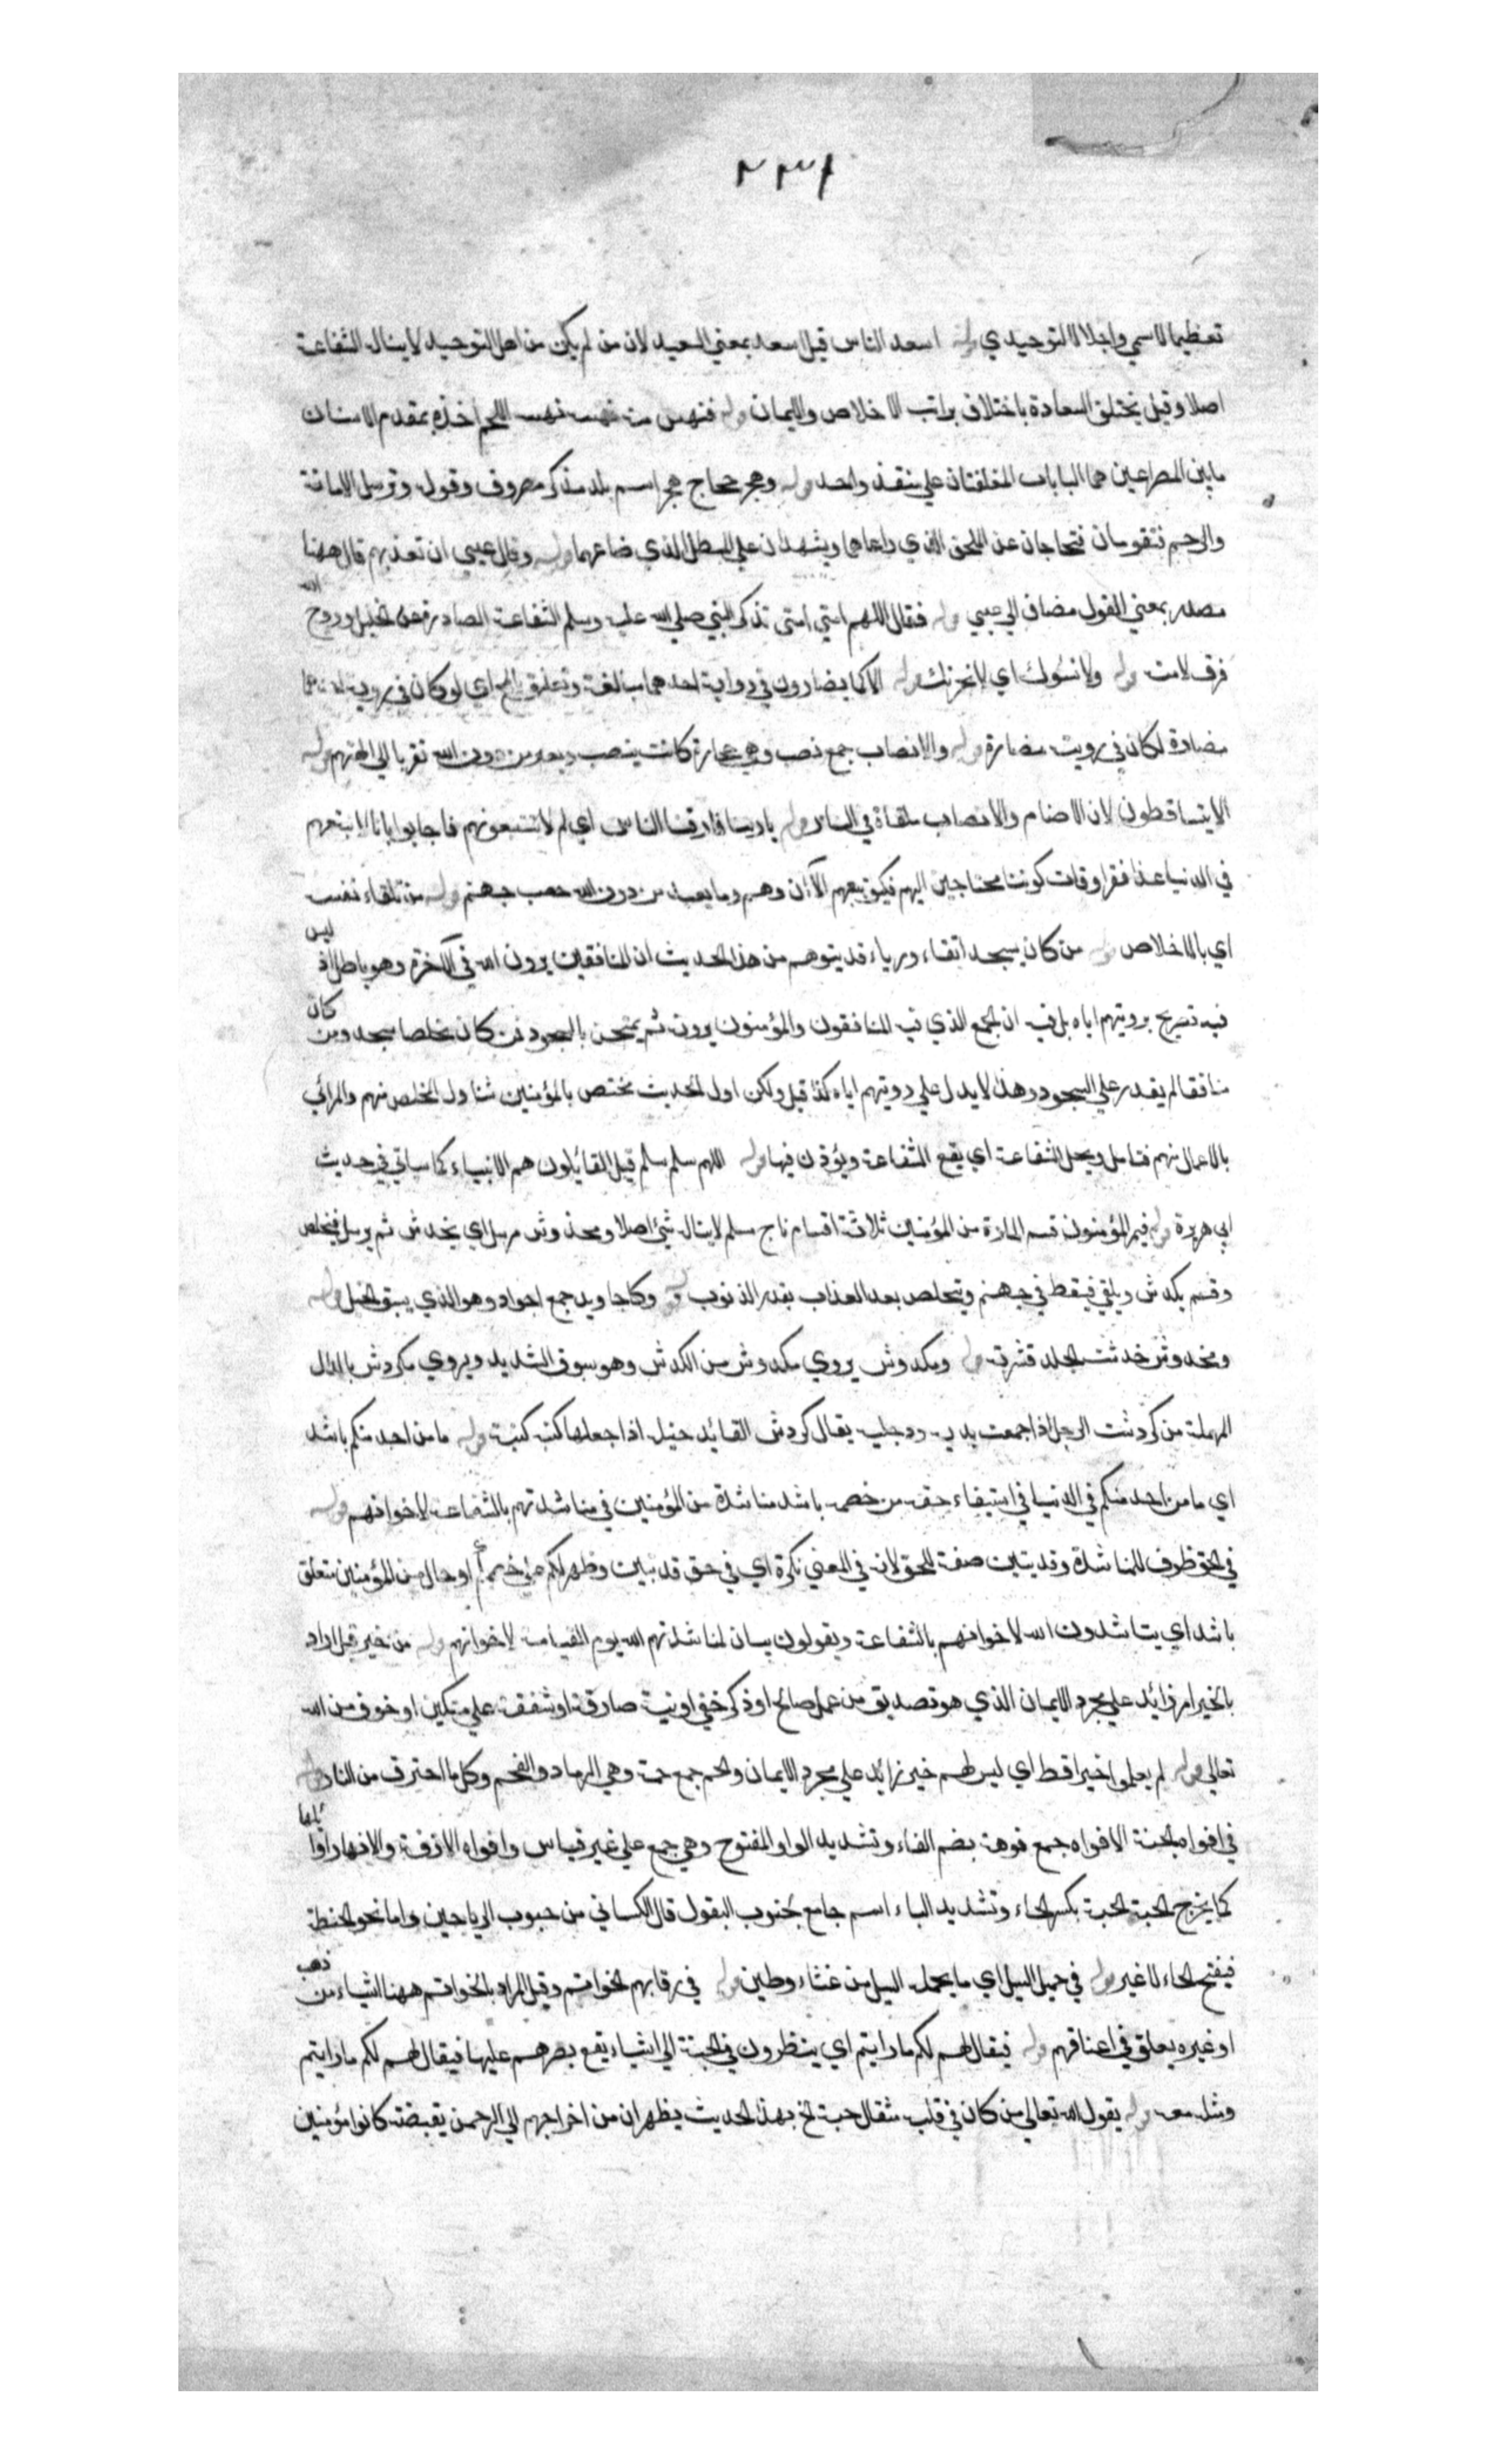 ٢٣١
تعظيما لاسمي واجلالا لتوحيدي قوله اسعد الناس قيل اسعد بمعني السعيد لان من لم يكن من اهل التوحيد لا يناله الشفاعة
اصلا وقيل يختلف السعادة باختلاف مراتب الاخلاص والايمان قوله فنهس منه نهسه نهسه اللحم اخذه بمقدم الاسنان
مابين المصراعين هما البابان المغلقتان علي منفذ واحد قوله وهجر هجر اسم بلد مذكر مصروف وقوله وترسل الامانة
والرحم فتقومان فتحاجان عن المحق الذي راعاهما ويشهدان علي المبطل الذي ضاعهما قوله وقال عيسي ان تعذبهم قال ههنا
مصدر بمعني القول مضاف الي عيسي قوله فقال اللهم امتي امتي تذكر النبي صلي الله عليه وسلم الشفاعة الصادرة عن الخليل وروح الله
فرق لامته قوله ولا نسوك اي لا نحزنك قوله الا كما يضارون في رواية احدهما مبالغة وتعليق بالمحال اي لو كان في روية احدهما
مضادة لكان في رويته مضارة قوله والانصاب جمع نصب وهي حجارة كانت ينصب ويعبد من دون الله تقربا الي الهتهم قوله
الا يتساقطون لان الاصنام والانصاب ملقاة في النار قوله يا ربنا فارقنا الناس اي لم لا تتبعونهم فاجابوا بانا لا نتبعهم
في الدنيا عند افقر اوقات كوننا محتاجين اليهم فكيف نتبعهم الآن وهم وما يعبد من دون الله حصب جهنم قوله من تلقاء نفسه
اي بالاخلاص قوله من كان يسجد اتقاء ورياء قد يتوهم من هذا الحديث ان المنافقين يرون الله في الآخرة وهو باطل اذ ليس
فيه تصريح برويتهم اياه بل فيه ان الجمع الذي فيه المنافقون والمؤمنون يرونه ثم يمتحن بالسجود فمن كان مخلصا سجد ومن كان
منافقا لم يقدر علي السجود وهذا لا يدل علي رويتهم اياه كذا قيل ولكن اول الحديث مختص بالمؤمنين تناول المخلص منهم والمرائي
بالاعمال منهم فتامل ويحل الشفاعة اي يقع الشفاعة ويؤذن فيها قوله اللهم سلم سلم قيل القائلون هم الانبياء كما سياتي في حديث
ابي هريرة قوله فيمر المؤمنون قسم المارة من المؤمنين ثلاثة اقسام ناج مسلم لا يناله شئ اصلا ومخدوش مرسل اي يخدش ثم يرسل فيخلص
وقسم يكدش ويلقي فيسقط في جهنم ويتخلص بعد العذاب بقدر الذنوب قوله وكاجاويد جمع اجواد وهو الذي يسبق الخيل قوله
ومخدوش خدشت الجلد قشرته قوله ومكدوش يروي مكدوش من الكدش وهو سوق الشديد ويروي مكردش بالدال
المهملة من كردشت الرجل اذا جمعت يديه ورجليه يقال كردش القائد خيله اذا جعلها كتيبة كتيبة قوله ما من احد منكم باشد
اي ما من احد منكم في الدنيا في استيفاء حقه من خصمه باشد مناشدة من المؤمنين في مناشدتهم بالشفاعة لاخوانهم قوله
في الحق ظرف للمناشدة وقد يتبين صفة للحق لانه في المعني نكرة اي في حق قد تبين وظهر لكم علي خصمكم او حال من المؤمنين متعلق
باشد اي يناشدون الله لاخوانهم بالشفاعة ويقولون بيان لمناشدتهم الله يوم القيامة لاخوانهم قوله من خير قيل اراد
بالخير امر زائد علي مجرد الايمان الذي هو تصديق من عمل صالح او ذكر خفي او نية صادقة او شفقة علي مسكين او خوف من الله
تعالي قوله لم يعملوا خيرا قط اي ليس لهم خير زائد علي مجرد الايمان والحمم جمع حمة وهي الرماد والفحم وكل ما احترق من النار قوله
في افواه الجنة الافواه جمع فوهة بضم الفاء وتشديد الواو المفتوح وهي جمع علي غير قياس وافواه الازقة والانهار اوائلها
كما يخرج الحبة الحبة بكسر الحاء وتشديد الباء اسم جامع لحبوب البقول قال الكسائي من حبوب الرياحين واما نحو الحنطة
فيفتح الحاء لا غير قوله في حميل السيل اي ما يحمله السيل من غثاء وطين قوله في رقابهم الخواتم وقيل المراد بالخواتم ههنا اشياء من ذهب
او غيره يعلق في اعناقهم قوله فيقال لهم لكم ما رايتم اي ينظرون في الجنة الي اشياء يقع بصرهم عليها فيقال لهم لكم ما رايتم
ومثله معه قوله يقول الله تعالي من كان في قلبه مثقال حبة الخ بهذا الحديث يظهر ان من اخراجهم الي الرحمن بقبضة كانوا مؤمنين